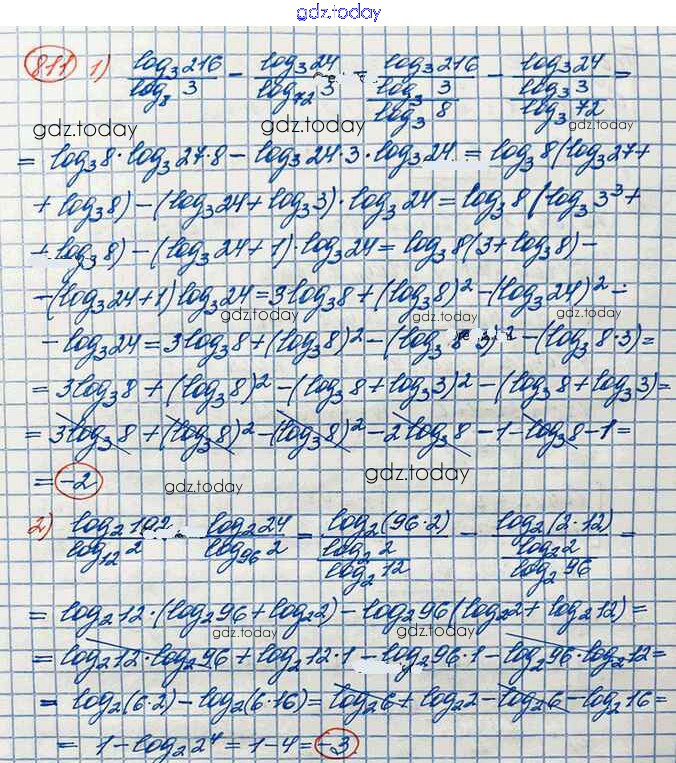 gdz.today
811 1) log₃216/log₈3 − log₃24/log₇₂3 = log₃216/(log₃3/log₃8) − log₃24/(log₃3/log₃72) =
gdz.today gdz.today gdz.today
= log₃8·log₃27·8 − log₃24·3·log₃24 = log₃8(log₃27+
+ log₃8) − (log₃24 + log₃3)·log₃24 = log₃8(log₃3³+
+ log₃8) − (log₃24 + 1)·log₃24 = log₃8(3 + log₃8) −
− (log₃24+1)log₃24 = 3log₃8 + (log₃8)² − (log₃24)² −
gdz.today gdz.today
− log₃24 = 3log₃8 + (log₃8)² − (log₃8·3)² − (log₃8·3) =
= 3log₃8 + (log₃8)² − (log₃8 + log₃3)² − (log₃8 + log₃3) =
= 3log₃8 + (log₃8)² − (log₃8)² − 2log₃8 − 1 − log₃8 − 1 =
= −2
gdz.today gdz.today
2) log₂192/log₁₂2 − log₂24/log₉₆2 = log₂(96·2)/(log₂2/log₂12) − log₂(2·12)/(log₂2/log₂96) =
= log₂12·(log₂96 + log₂2) − log₂96(log₂2 + log₂12) =
gdz.today gdz.today
= log₂12·log₂96 + log₂12·1 − log₂96·1 − log₂96·log₂12 =
= log₂(6·2) − log₂(6·16) = log₂6 + log₂2 − log₂6 − log₂16 =
= 1 − log₂2⁴ = 1 − 4 = −3